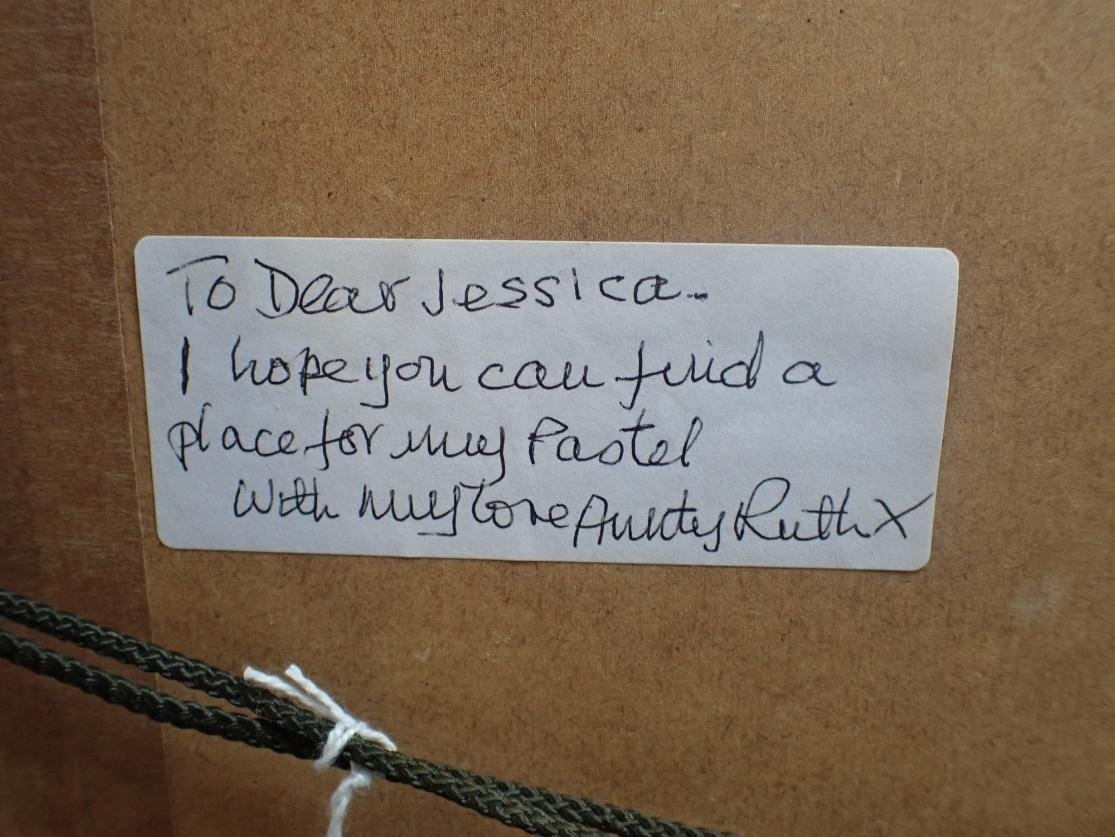 To Dear Jessica..
I hope you can find a
place for my Pastel
With my love Aunty Ruth X